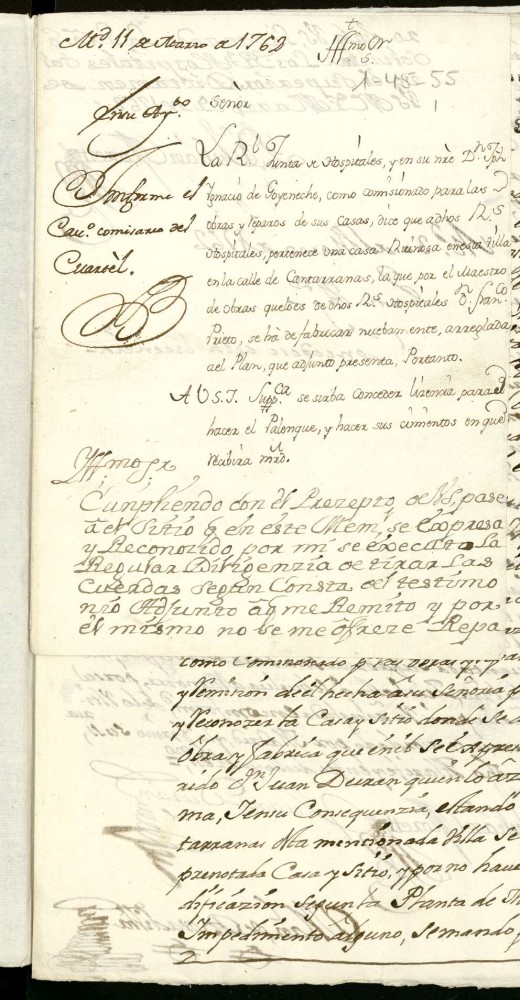 Md. 11 de Marzo de 1762
Illmo Sr
1-45-55
Señor
Informe el
Cavº. comisario del
Cuartèl.
La Rl. Junta de Hospitales, y en su nre Dn. Jph
Ignacio de Goyeneche, como comisionado para las
obras y reparos de sus Casas, dice que a dhos Rs.
Hospitales, pertenece una casa Ruinosa en esta Villa
en la calle de Cantarranas, la que por el Maestro
de obras que lo es de dhos Rs. Hospitales Dn. Franco.
Prieto, se hà de fabricar nuebamente, arreglada
a el Plan, que adjunto presenta, Portanto.
A V.S.I. Suppca. se sirba Conceder lizencia para
hacer el Palenque, y hacer sus cimientos en que
recibira mrd.
Yllmo Sr
Cumpliendo con èl Prezepto de V.S. pase
a el Sitio q en este Meml. se Expresa
y Reconozido por mi se executo la
Regular Diligenzia de tirar las
Cuerdas Segun Consta del testimo
nio Adjunto a q me Remito y por
èl mismo no se me ofreze Repa
como Comisionado
y Remision de el hecha a su Señoria
y Reconozer la Casa y Sitio donde se
Obra y fabrica que en èl se Expres
rido Dn. Juan Duran quien lo
ma, Yen su Consequenzia, estando
tarranas de la mencionada Villa Se
prenotada Casa y Sitio, y por no have
dificazion segun la Planta de
Impedimento alguno, se mando